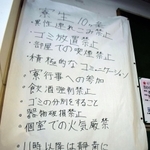 寮生10ヶ条
・異性連れこみ禁止
・ゴミ放置禁止
・部屋での喫煙禁止
・積極的なコミュニケーション
・寮行事への参加
・飲酒強制禁止
・ゴミの分別をすること
・器物破損禁止
・個室での火気厳禁
・11時以降は静粛に